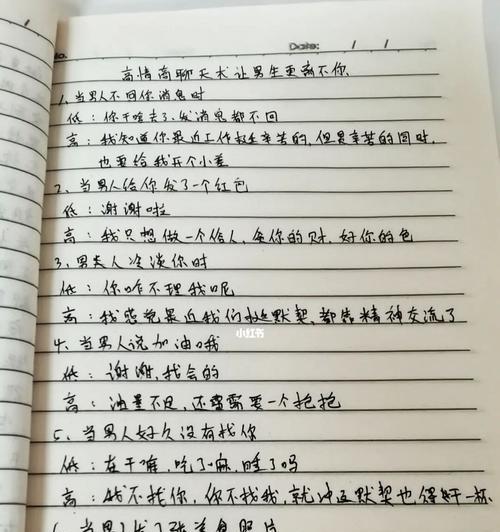 Date: / /
高情商聊天术让男生更离不你
1、当男人不回你消息时
低：你干啥去了,发消息都不回
高：我知道你最近工作挺辛苦的,但是辛苦的同时,
也要给我开个小差
2、当男人给你发了一个红包
低：谢谢啦
高：我只想做一个俗人,贪你的财,好你的色
3、男人冷淡你时
低：你咋不理我呢
高：我感觉最近我们挺默契,都靠精神交流了
小红书
4、当男人说加油哦
低：谢谢,我会的
高：油量不足,还需要一个抱抱
5、当男人好久没有找你
低：在干嘛,吃了嘛,睡了吗
高：我不找你,你不找我,就冲这默契也得好一杯